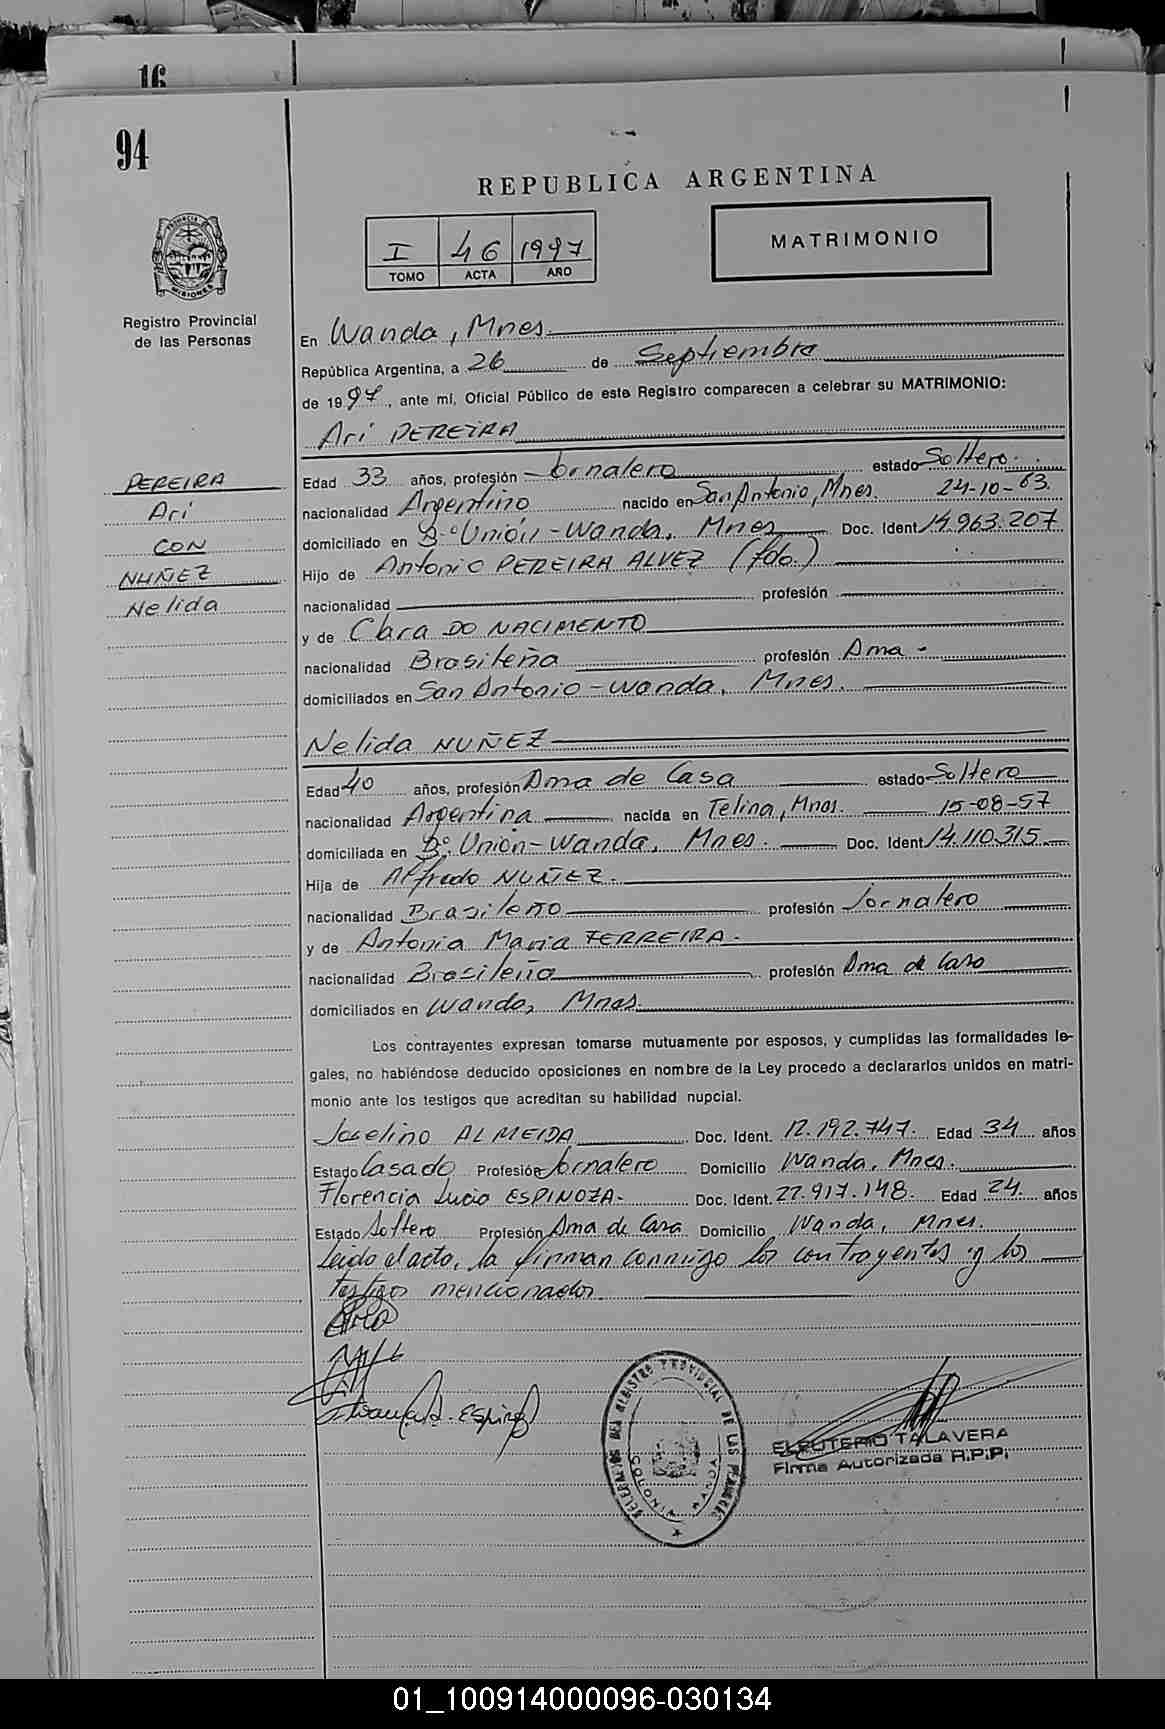 16
94
REPUBLICA ARGENTINA
I 46 1997
TOMO ACTA AÑO
MATRIMONIO
PROVINCIA DE MISIONES
Registro Provincial
de las Personas
En Wanda, Mnes.
República Argentina, a 26 de Septiembre
de 1997, ante mí, Oficial Público de este Registro comparecen a celebrar su MATRIMONIO:
Ari PEREIRA
PEREIRA
Ari
CON
NUÑEZ
Nelida
Edad 33 años, profesión Jornalero estado Soltero.
nacionalidad Argentino nacido en San Antonio, Mnes. 24-10-63.
domiciliado en Bº Unión-Wanda, Mnes Doc. Ident 14.963.207
Hijo de Antonio PEREIRA ALVEZ (fdo.)
nacionalidad profesión
y de Clara DO NACIMENTO
nacionalidad Brasileña profesión Ama -
domiciliados en San Antonio-Wanda, Mnes.
Nelida NUÑEZ
Edad 40 años, profesión Ama de Casa estado Soltera
nacionalidad Argentina nacida en Mnes. 15-08-57
domiciliada en Bº Unión-Wanda, Mnes. Doc. Ident 14.110.315
Hija de Alfredo NUÑEZ.
nacionalidad Brasileño profesión Jornalero
y de Antonia Maria FERREIRA.
nacionalidad Brasileña profesión Ama de Casa
domiciliados en Wanda, Mnes.
Los contrayentes expresan tomarse mutuamente por esposos, y cumplidas las formalidades le-
gales, no habiéndose deducido oposiciones en nombre de la Ley procedo a declararlos unidos en matri-
monio ante los testigos que acreditan su habilidad nupcial.
Joselino ALMEIDA Doc. Ident. 17.192.747. Edad 34 años
Estado Casado Profesión Jornalero Domicilio Wanda, Mnes.
Florencia Lucia ESPINOZA. Doc. Ident. 22.917.148. Edad 24 años
Estado Soltera Profesión Ama de Casa Domicilio Wanda, Mnes.
Leido el acto, la firman conmigo los contrayentes y los
testigos mencionados.
Espinoza
REGISTRO PROVINCIAL DE LAS PERSONAS
WANDA
ELEUTERIO TALAVERA
Firma Autorizada R.P.P.
01_100914000096-030134